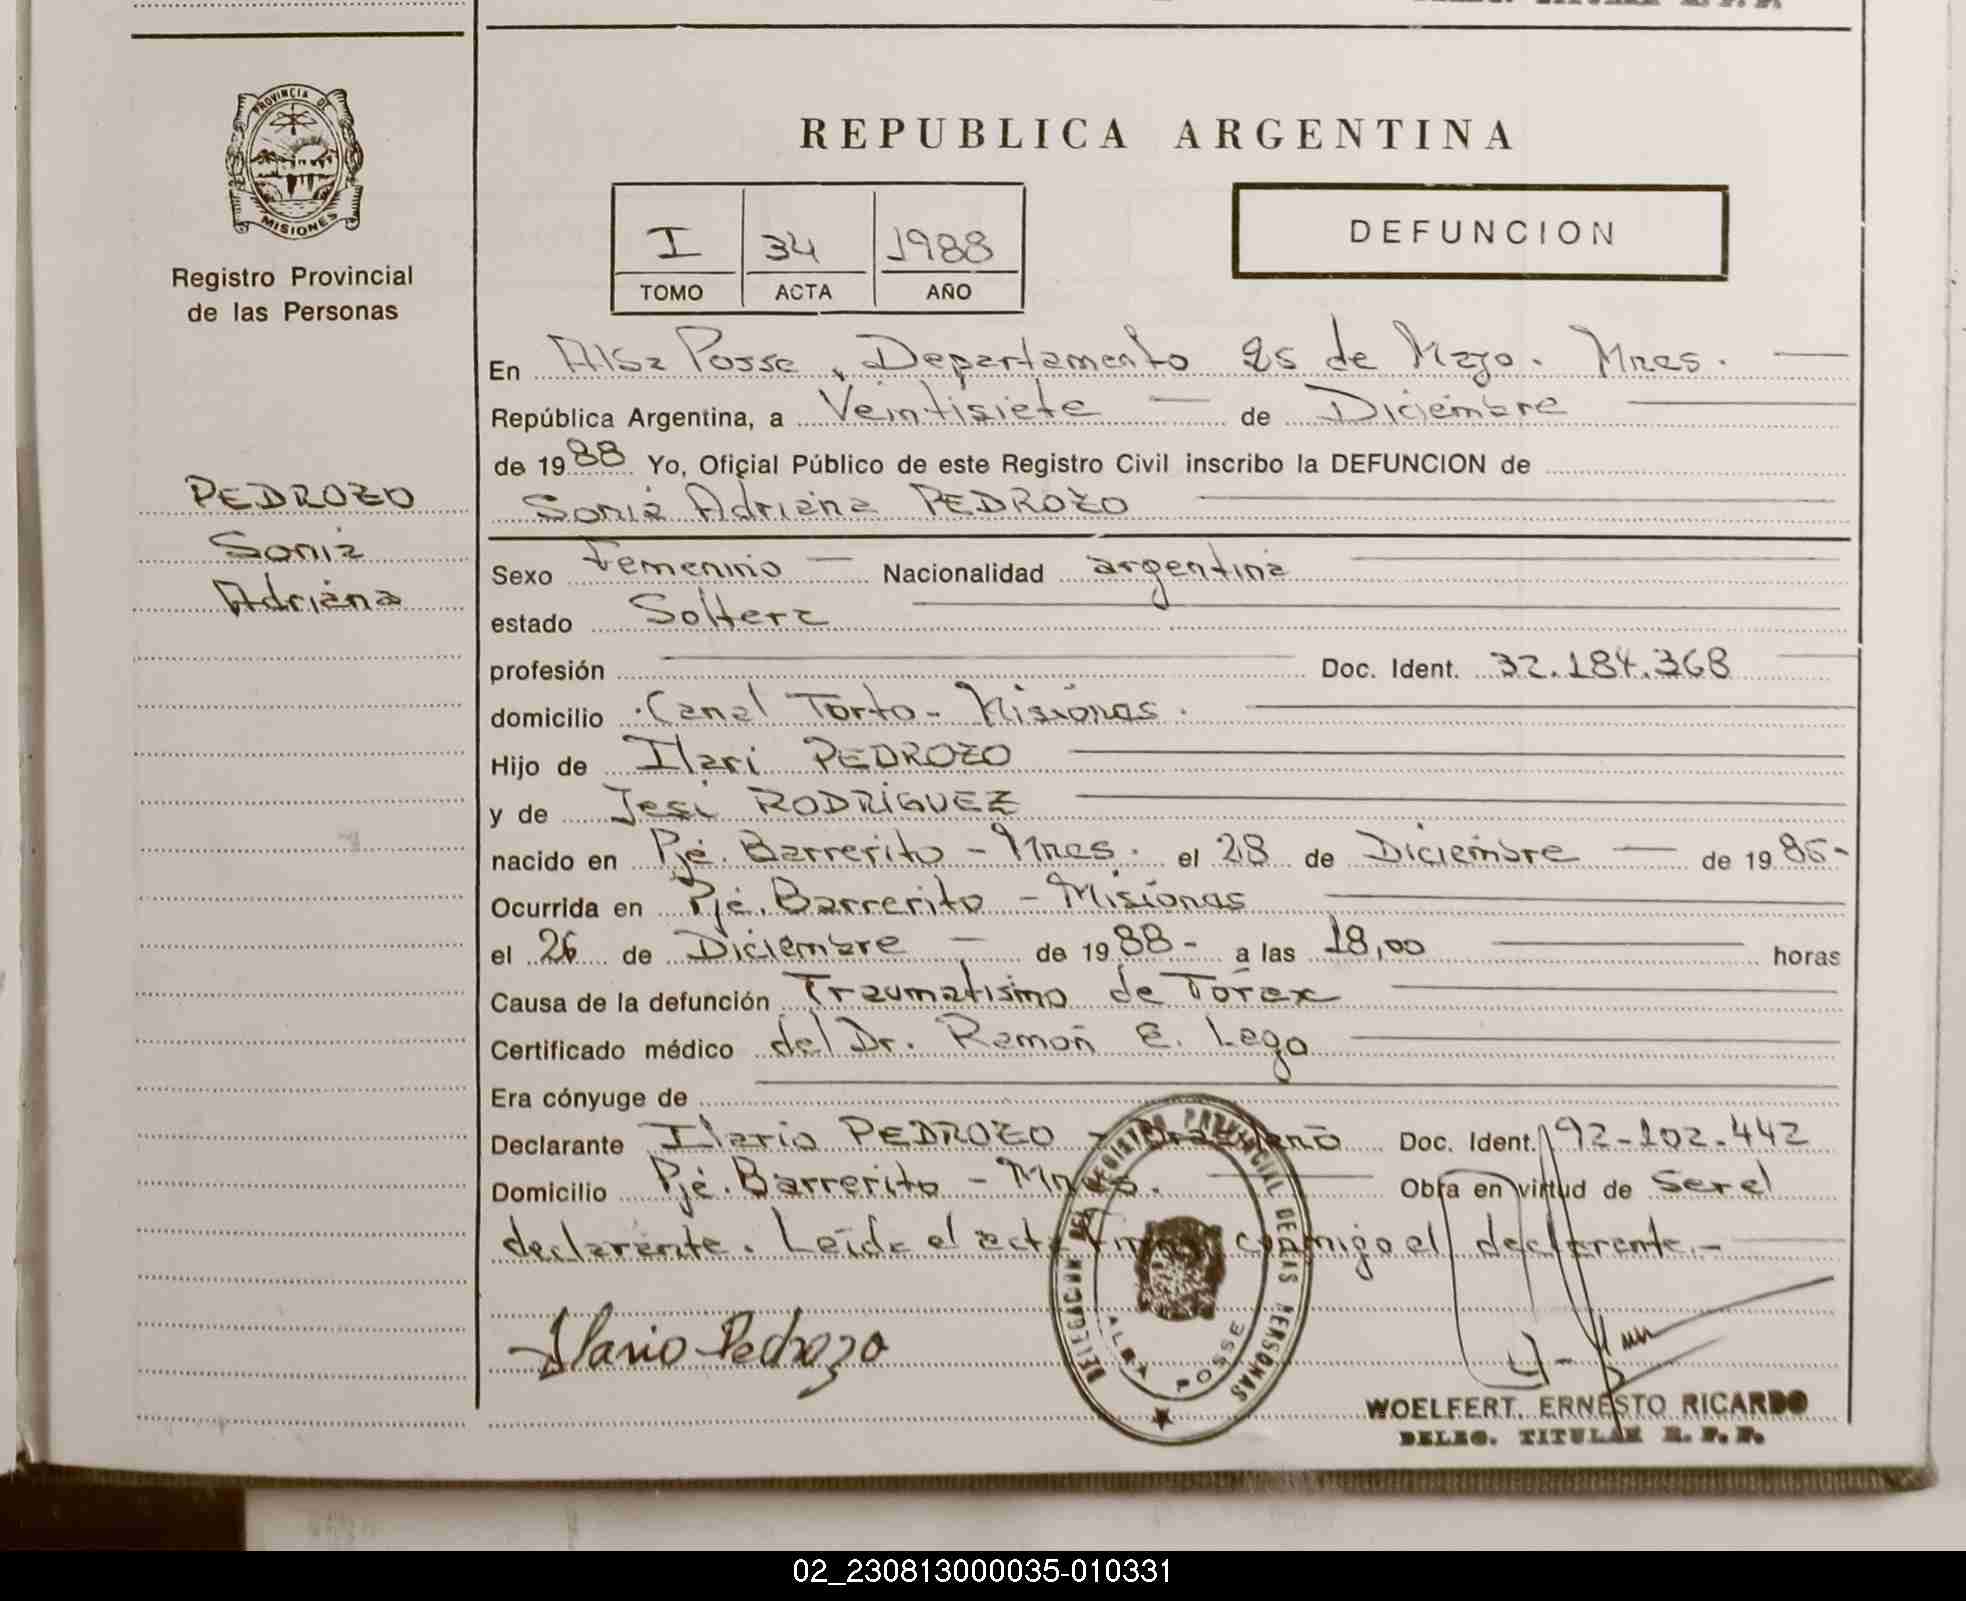 PROVINCIA DE
MISIONES
Registro Provincial
de las Personas
PEDROZO
Sonia
Adriana
REPUBLICA ARGENTINA
I 34 1988
TOMO ACTA AÑO
DEFUNCION
En Alba Posse, Departamento 25 de Mayo. Mnes.
República Argentina, a Veintisiete de Diciembre
de 1988 Yo, Oficial Público de este Registro Civil inscribo la DEFUNCION de
Sonia Adriana PEDROZO
Sexo Femenino Nacionalidad argentina
estado Soltera
profesión Doc. Ident. 32.184.368
domicilio Canal Torto - Misiones.
Hijo de Ilari PEDROZO
y de Jesi RODRÍGUEZ
nacido en Pje. Barrerito - Mnes. el 28 de Diciembre de 1985-
Ocurrida en Pje. Barrerito - Misiones
el 26 de Diciembre de 1988- a las 18,00 horas
Causa de la defunción Traumatismo de Tórax
Certificado médico del Dr. Ramón E. Lego
Era cónyuge de
Declarante Ilario PEDROZO - brasileño Doc. Ident. 92-102.442
Domicilio Pje. Barrerito - Mnes. Obra en virtud de Ser el
declarente. Leída el acta firma conmigo el declarente.-
Ilario Pedrozo
DELEGACION DEL REGISTRO PROVINCIAL DE LAS PERSONAS
ALBA POSSE
WOELFERT. ERNESTO RICARDO
DELEG. TITULAR R. P. P.
02_230813000035-010331